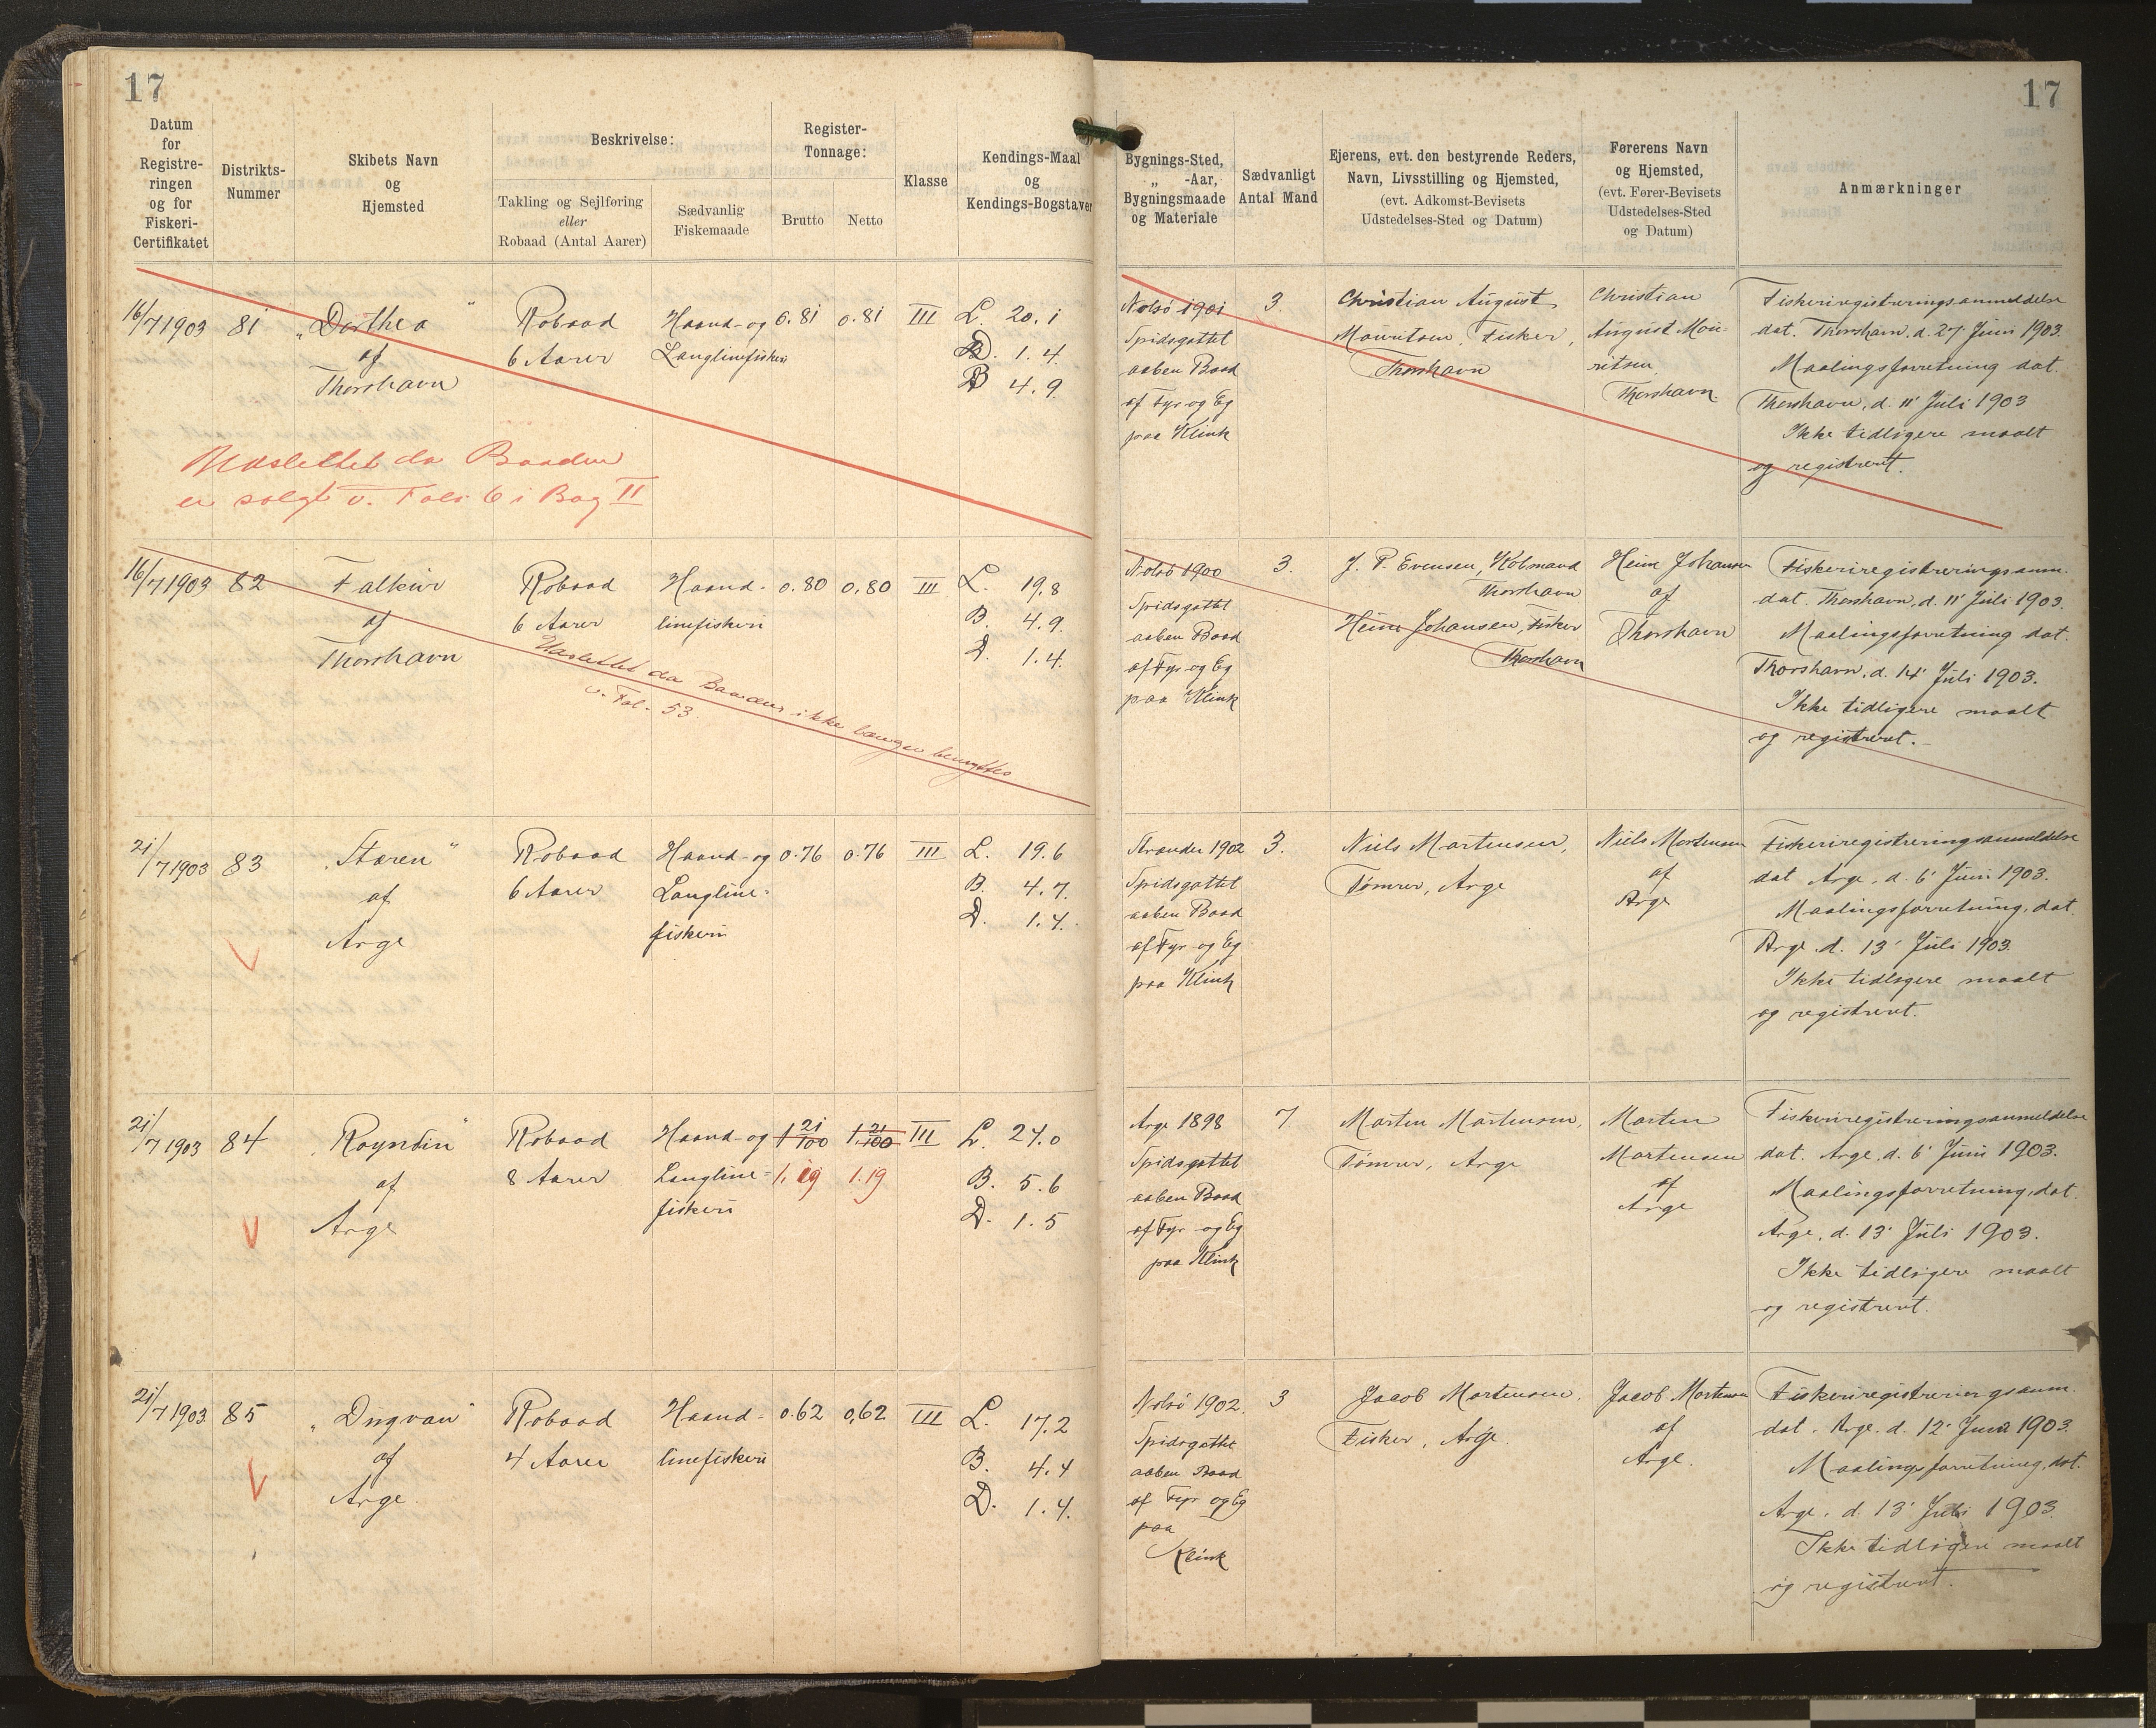 17
17
Datum
for
Registre-
ringen
og for
Fiskeri-
Certifikatet
Distrikts-
Nummer
Skibets Navn
og
Hjemsted
Beskrivelse:
Takling og Sejlføring
eller
Robaad (Antal Aarer)
Sædvanlig
Fiskemaade
Register-
Tonnage:
Brutto
Netto
Klasse
Kendings-Maal
og
Kendings-Bogstaver
Bygnings-Sted,
„ -Aar,
Bygningsmaade
og Materiale
Sædvanligt
Antal Mand
Ejerens, evt. den bestyrende Reders,
Navn, Livsstilling og Hjemsted,
(evt. Adkomst-Bevisets
Udstedelses-Sted og Datum)
Førerens Navn
og Hjemsted,
(evt. Fører-Bevisets
Udstedelses-Sted
og Datum)
Anmærkninger
16/7 1903
81
„Dorthea"
af
Thorshavn
Robaad
6 Aarer
Haand- og
Langlinefiskeri
0.81
0.81
III
L. 20.1
D. 1.4
B 4.9
Nolsö 1901
Spidsgattet
aaben Baad
af Fyr og Eg
paa Klink
3.
Christian August
Mouritsen, Fisker,
Thorshavn
Christian
August Mou-
ritsen
Thorshavn.
Fiskeriregistreringsanmeldelse
dat. Thorshavn, d. 27' Juni 1903.
Maalingsforretning dat.
Thorshavn, d. 11' Juli 1903
Ikke tidligere maalt
og registreret.
Udslettet da Baaden
er solgt v. Folio 6 i Bog II
16/7 1903
82
Falkur
af
Thorshavn
Robaad
6 Aarer
Haand-
linefiskeri
0.80
0,80
III
L. 19,8
B. 4.9.
D. 1.4.
Nolsö 1900
Spidsgattet
aaben Baad
af Fyr og Eg
paa Klink
3.
J. P. Evensen, Købmand
Thorshavn
Heine Johansen, Fisker
Thorshavn
Heine Johansen
af
Thorshavn
Fiskeriregistreringsanm.
dat. Thorshavn, d. 11' Juli 1903.
Maalingsforretning dat.
Thorshavn, d. 14' Juli 1903.
Ikke tidligere maalt
og registreret.
Udslettet da Baaden ikke længer benyttes
v. Fol. 53
21/7 1903
83
„Stæren"
af
Arge
Robaad
6 Aarer
Haand- og
Langline-
fiskeri
0.76
0.76
III
L. 19.6
B. 4.7.
D. 1.4.
Strander 1902
Spidsgattet
aaben Baad
af Fyr og Eg
paa Klink
3.
Niels Mortensen,
Tømrer, Arge
Niels Mortensen
af
Arge
Fiskeriregistreringsanmeldelse
dat Arge, d. 6' Juni 1903.
Maalingsforretning, dat.
Arge d. 13' Juli 1903.
Ikke tidligere maalt
og registreret.
21/7 1903
84
„Royndin"
af
Arge
Robaad
8 Aarer
Haand- og
Langline-
fiskeri
1 21/100
1 21/100
1.19
1.19
III
L. 24.0
B. 5.6
D. 1.5
Arge 1898
Spidsgattet
aaben Baad
af Fyr og Eg
paa Klink
7.
Morten Mortensen,
Tømrer, Arge
Morten
Mortensen
af
Arge
Fiskeriregistreringsanmeldelse
dat. Arge, d. 6' Juni 1903.
Maalingsforretning, dat.
Arge, d. 13' Juli 1903.
Ikke tidligere maalt
og registreret.
21/7 1903
85
af
Arge.
Robaad
4 Aarer
Haand-
linefiskeri
0.62
0,62
III
L. 17.2
B. 4.4
D. 1.4.
Nolsö 1902
Spidsgattet
aaben Baad
af Fyr og Eg
paa
Klink
3
Jacob Mortensen,
Fisker, Arge.
Jacob Mortensen
af
Arge.
Fiskeriregistreringsanm.
dat. Arge. d. 12' Juni 1903.
Maalingsforretning, dat.
Arge. d. 13' Juli 1903.
Ikke tidligere maalt
og registreret.